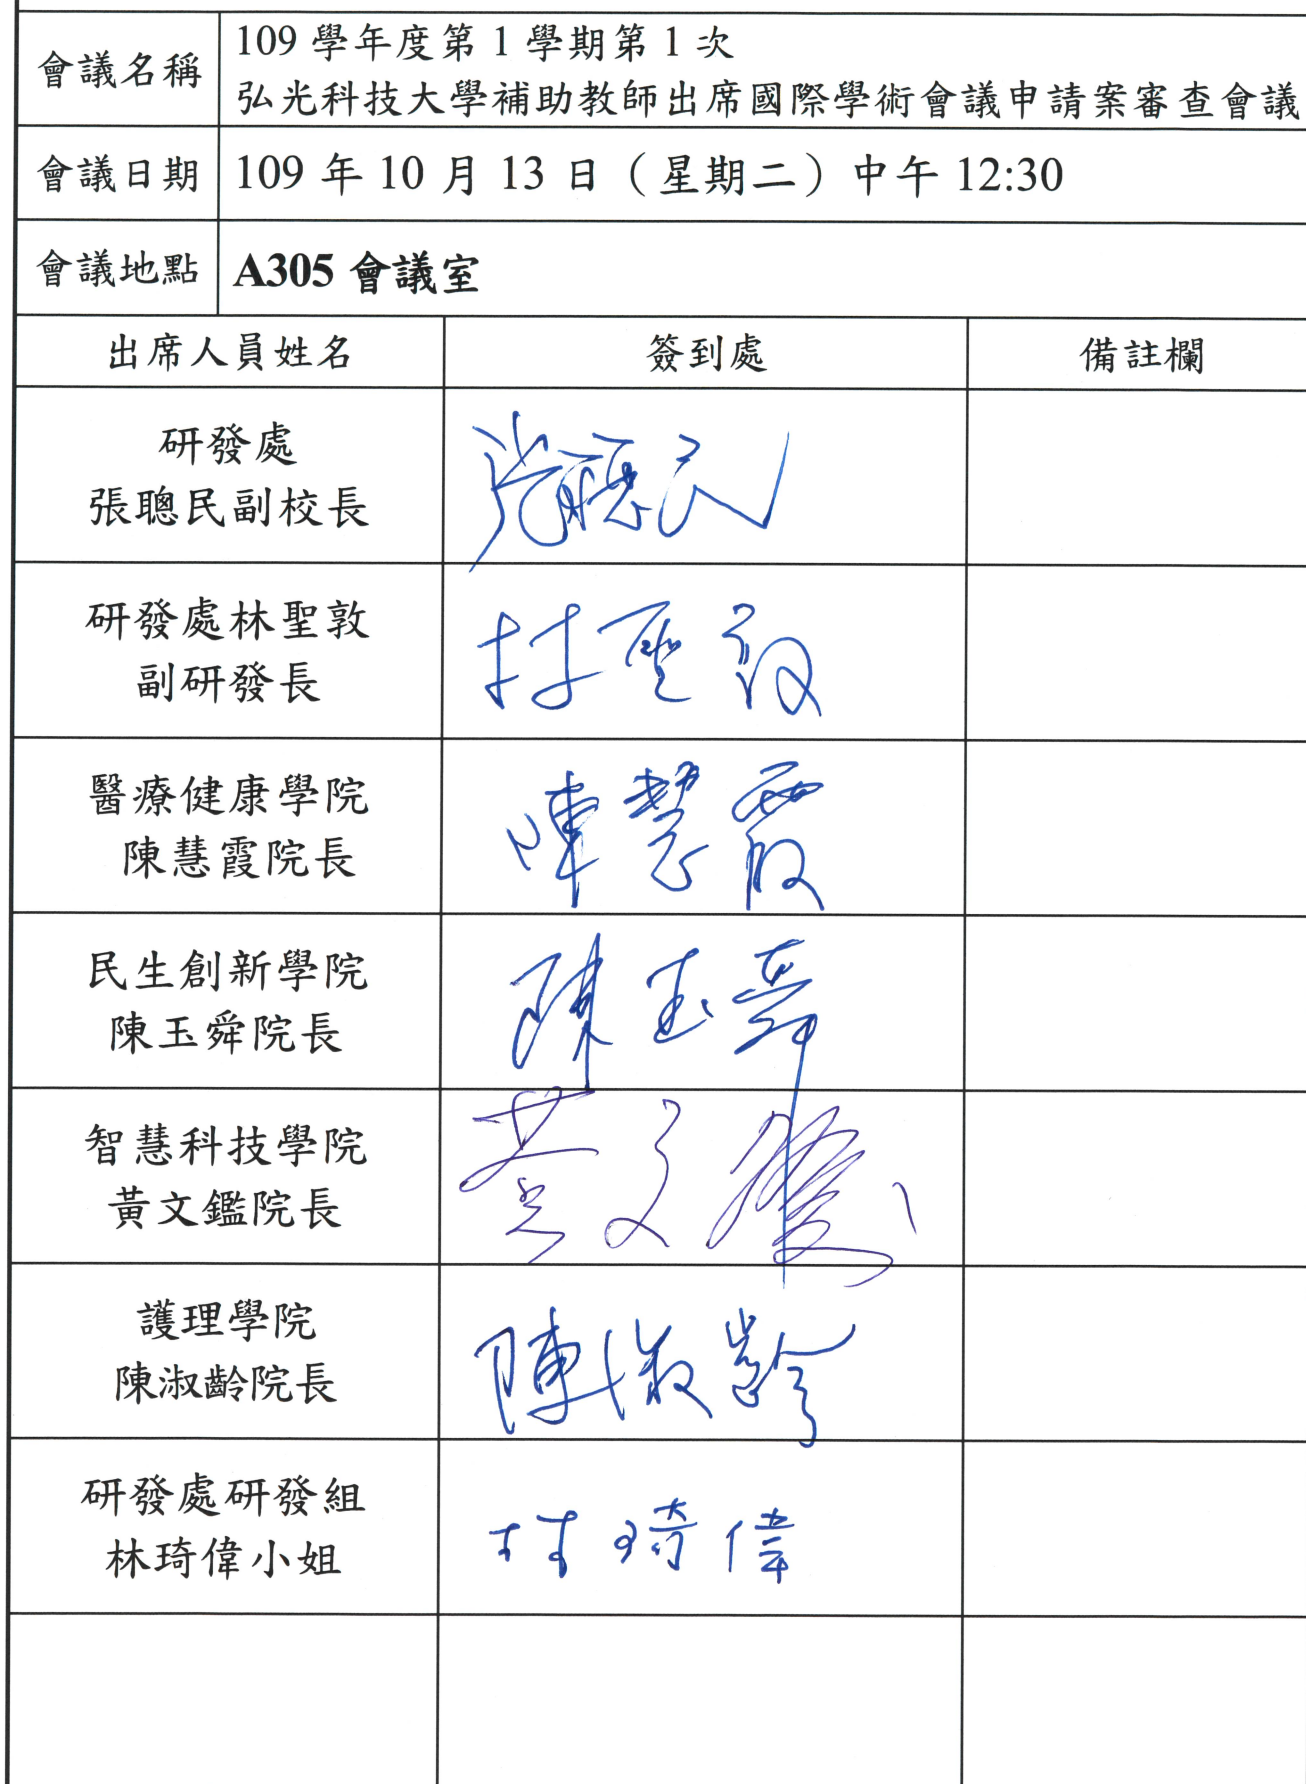 會議名稱
109 學年度第 1 學期第 1 次
弘光科技大學補助教師出席國際學術會議申請案審查會議
會議日期
109 年 10 月 13 日（星期二）中午 12:30
會議地點
A305 會議室
出席人員姓名
簽到處
備註欄
研發處
張聰民副校長
張聰民
研發處林聖敦
副研發長
林聖敦
醫療健康學院
陳慧霞院長
陳慧霞
民生創新學院
陳玉舜院長
陳玉舜
智慧科技學院
黃文鑑院長
黃文鑑
護理學院
陳淑齡院長
陳淑齡
研發處研發組
林琦偉小姐
林琦偉